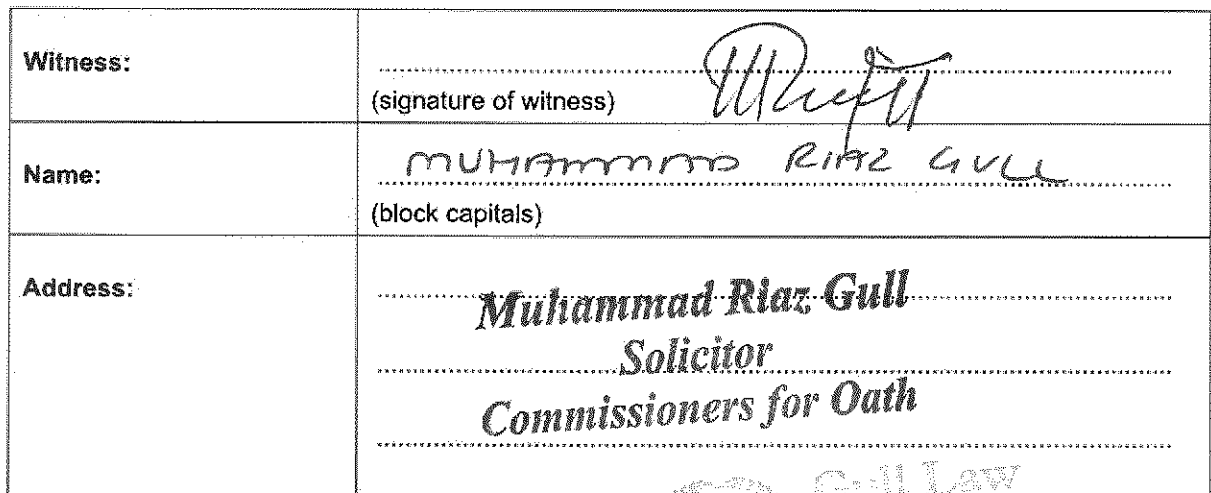 Witness:
(signature of witness)
Name:
MUHAMMAD RIAZ GULL
(block capitals)
Address:
Muhammad Riaz Gull
Solicitor
Commissioners for Oath
Gull Law